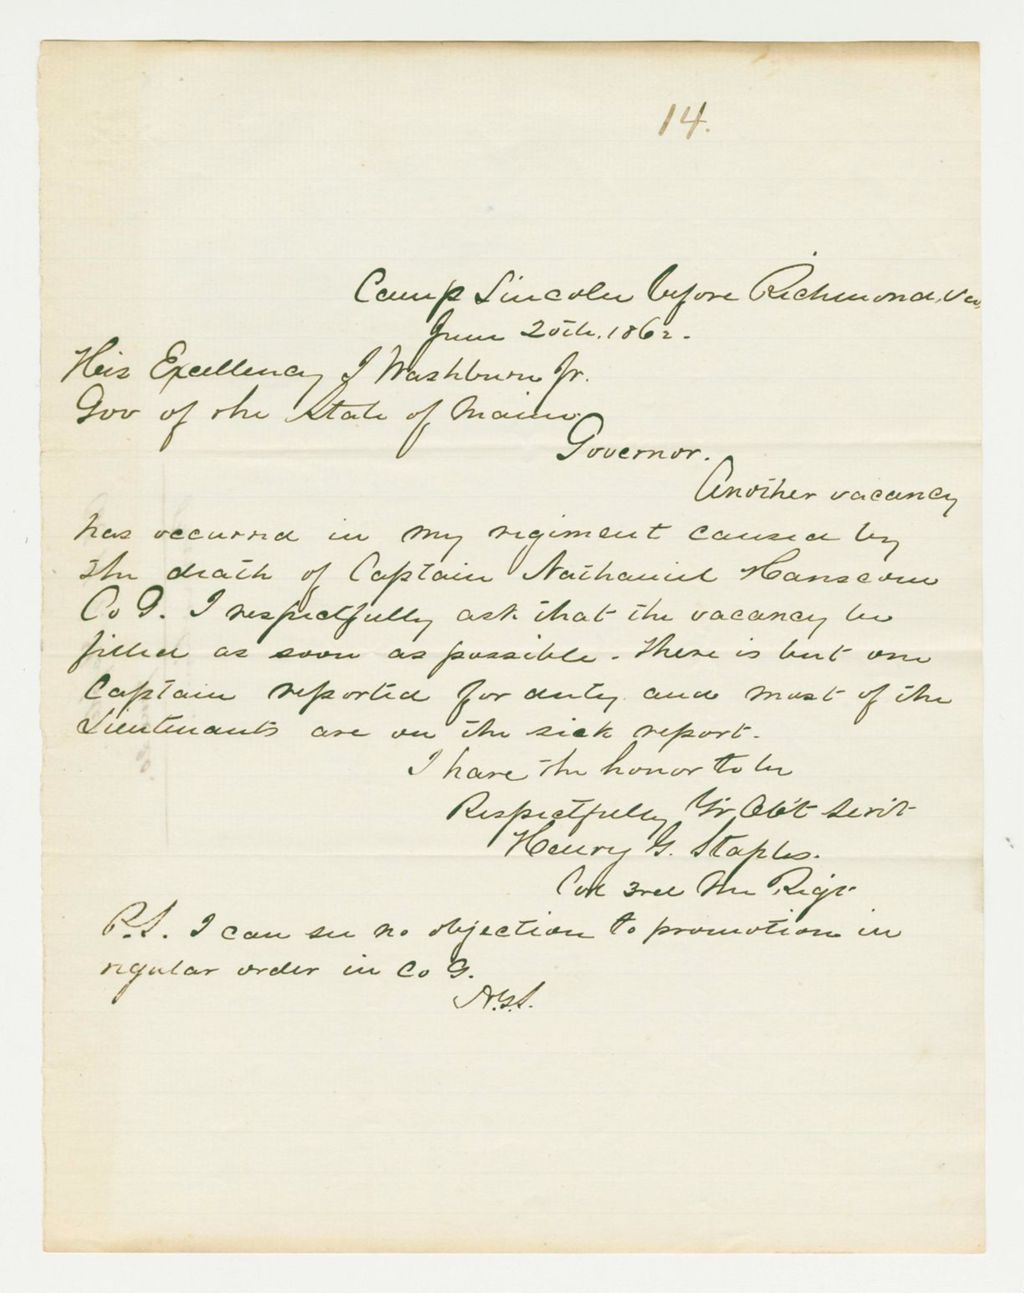 14.
Camp Lincoln before Richmond, Va,
June 20th, 1862.
His Excellency I Washburn Jr.
Gov of the State of Maine
Governor.
Another vacancy
has occurred in my regiment caused by
the death of Captain Nathaniel Hanscom
Co G. I respectfully ask that the vacancy be
filled as soon as possible. There is but one
Captain reported for duty and most of the
Lieutenants are on the sick report.
I have the honor to be
Respectfully Yr Obt Servt
Henry G. Staples.
Col 3rd Me Regt
P.S. I can see no objection to promotion in
regular order in Co G.
H.G.S.